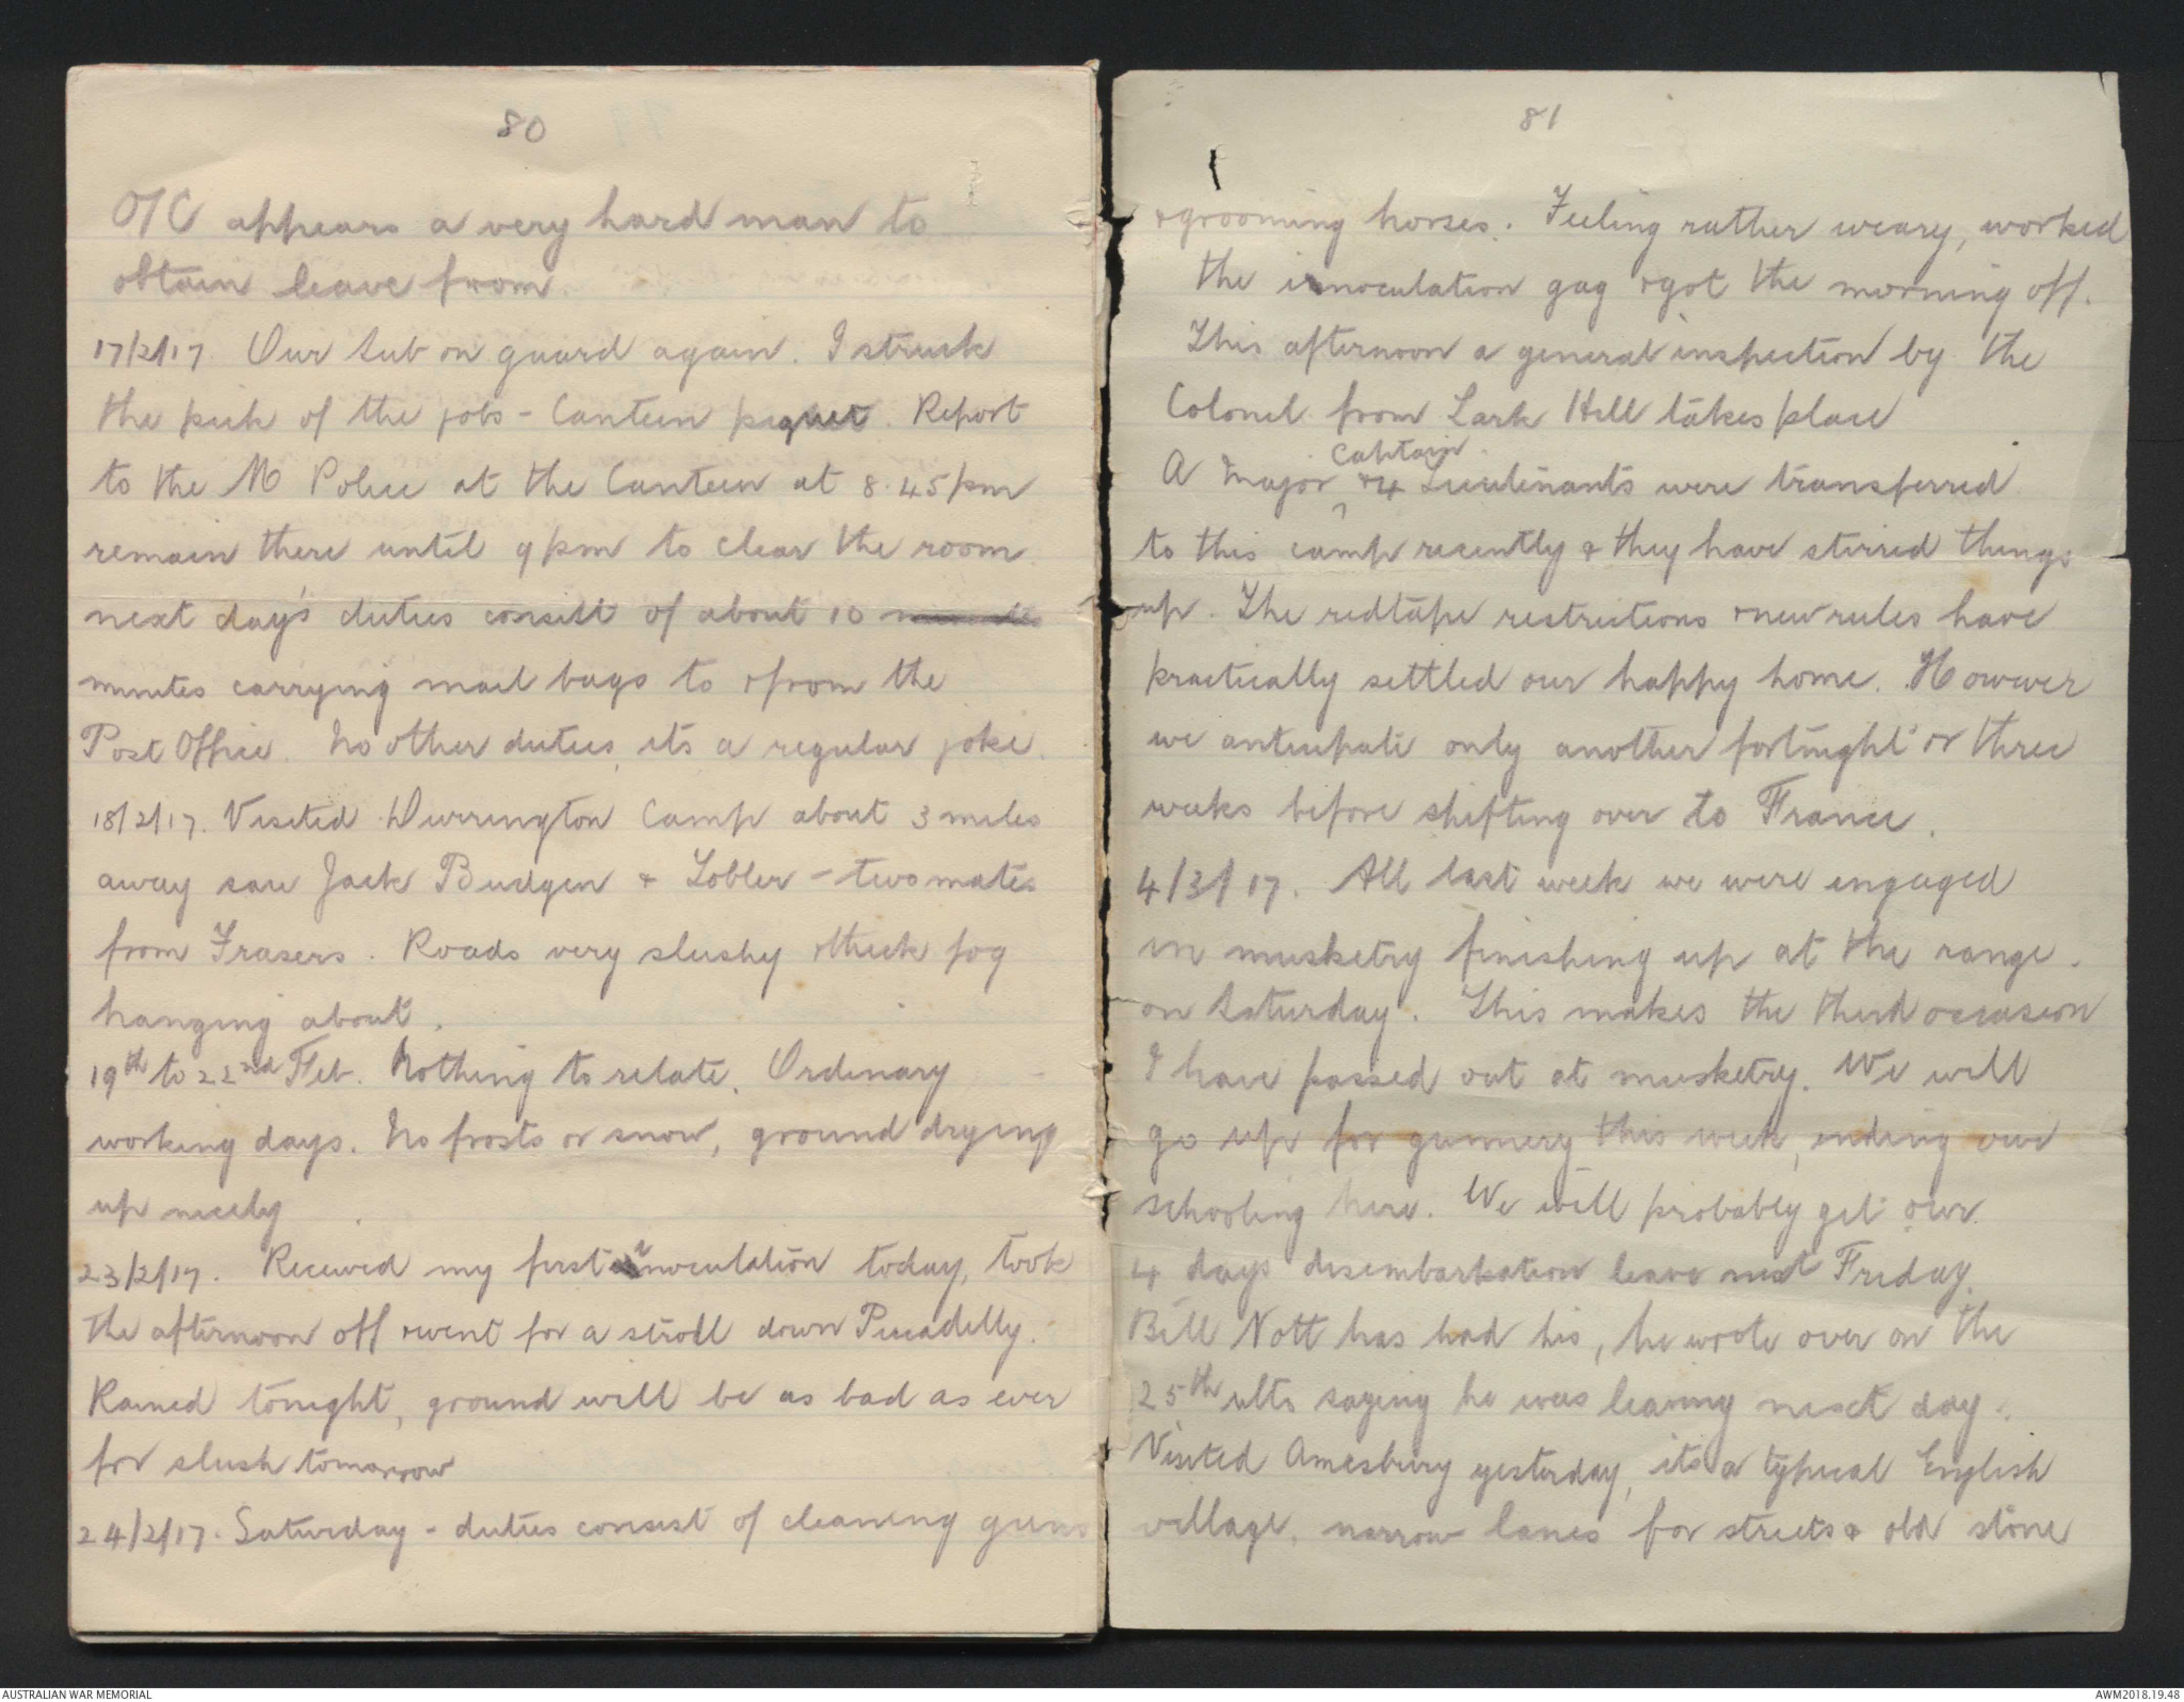 80
O/C appears a very hard man to
obtain leave from.
17/2/17. Our Sub on guard again. I struck
the pick of the jobs - Canteen piquet. Report
to the M Police at the Canteen at 8.45 pm
remain there until 9 pm to clear the room
next day's duties consist of about 10
minutes carrying mail bags to & from the
Post Office. No other duties, its a regular joke.
18/2/17. Visited Durrington Camp about 3 miles
away saw Jack Budgen & Lobler - two mates
from Frasers. Roads very slushy & thick fog
hanging about.
19th to 22nd Feb. Nothing to relate. Ordinary
working days. No frosts or snow, ground drying
up nicely.
23/2/17. Received my first inoculation today, took
the afternoon off & went for a stroll down Piccadilly.
Rained tonight, ground will be as bad as ever
for slush tomorrow
24/2/17. Saturday - duties consist of cleaning guns
81
& grooming horses. Feeling rather weary, worked
the innoculation gag & got the morning off.
This afternoon a general inspection by the
Colonel from Lark Hill takes place
Captain
A Major & 4 Lieutenants were transferred
to this camp recently & they have stirred things
up. The redtape restrictions & new rules have
practically settled our happy home. However
we anticipate only another fortnight or three
weeks before shifting over to France.
4/3/17. All last week we were engaged
in musketry finishing up at the range.
on Saturday. This makes the third occasion
I have passed out at musketry. We will
go up for gunnery this week, ending our
schooling here. We will probably get our
4 days disembarkation leave next Friday.
Bill Nott has had his, he wrote over on the
25th ulto saying he was leaving next day.
Visited Amesbury yesterday, its a typical English
village, narrow lanes for streets & old stone
AUSTRALIAN WAR MEMORIAL
AWM2018.19.48